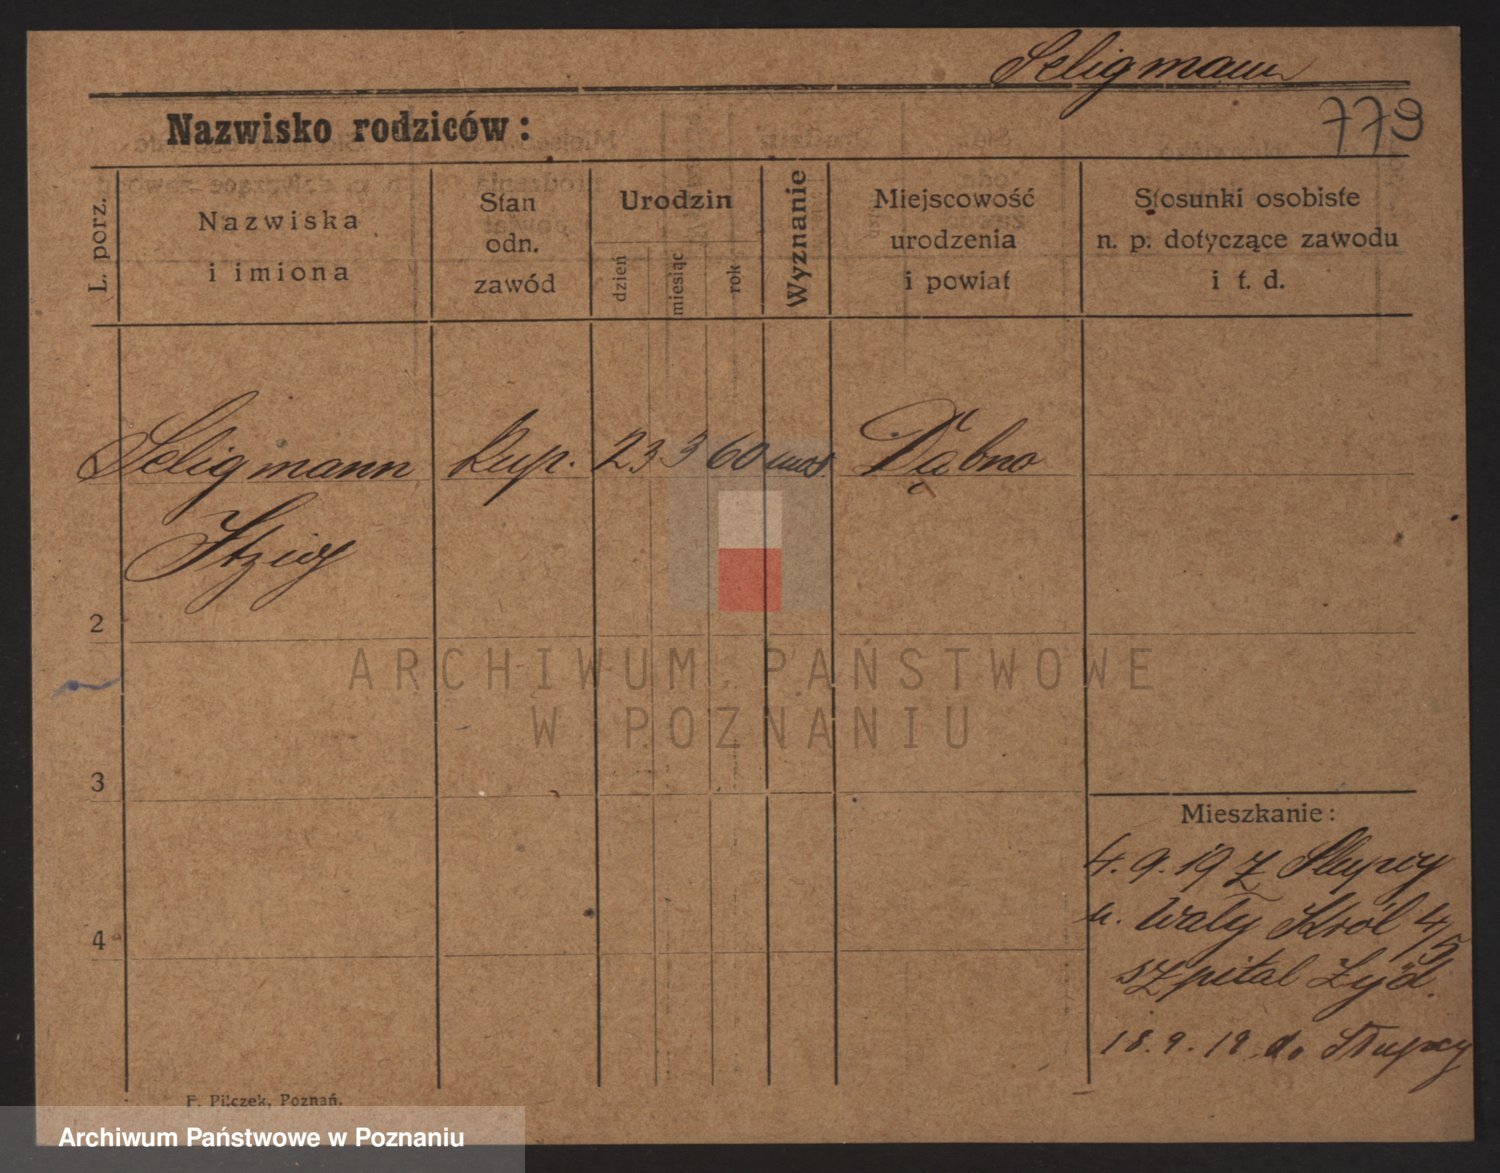 Seligmann
779
Nazwisko rodziców:
L. porz.
Nazwiska
i imiona
Stan
odn.
zawód
Urodzin
dzień
miesiąc
rok
Wyznanie
Miejscowość
urodzenia
i powiat
Stosunki osobiste
n. p. dotyczące zawodu
i t. d.
Seligmann kup. 23 3 60 moj. Dąbno
Itzig
2
ARCHIWUM PAŃSTWOWE
W POZNANIU
3
Mieszkanie:
4. 9. 19 z Słupcy
Wały Król 4/5
4
szpital Żyd.
18. 9. 19 do Słupcy
F. Pilczek, Poznań.
Archiwum Państwowe w Poznaniu